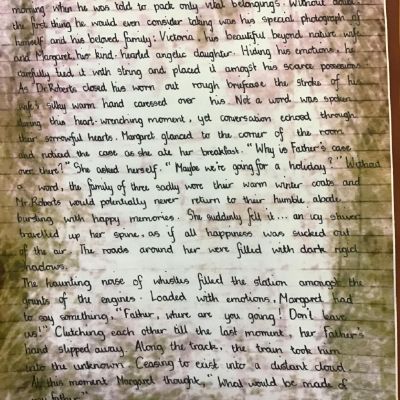 morning when he was told to pack only vital belongings. Without doubt,
the first thing he would even consider taking was his special photograph of
himself and his beloved family: Victoria, his beautiful beyond nature wife
and Margaret, her kind-hearted angelic daughter. Hiding his emotions, he
carefully tied it with string and placed it amongst his scarce possessions.
As Dr Roberts closed his worn out rough briefcase the stroke of his
wife's silky warm hand caressed over his. Not a word was spoken
during this heart-wrenching moment, yet conversation echoed through
their sorrowful hearts. Margaret glanced to the corner of the room
and noticed the case as she ate her breakfast. "Why is Father's case
over there?" She asked herself. "Maybe we're going for a holiday?" Without
a word, the family of three sadly wore their warm winter coats and
Mr. Roberts would potentially never return to their humble abode
bursting with happy memories. She suddenly felt it... an icy shiver
travelled up her spine, as if all happiness was sucked out
of the air. The roads around her were filled with dark rigid
shadows.
The haunting noise of whistles filled the station amongst the
grunts of the engines. Loaded with emotions, Margaret had
to say something, "Father, where are you going! Don't leave
us!" Clutching each other till the last moment, her Father's
hand slipped away. Along the track, the train took him
into the unknown. Ceasing to exist into a distant cloud.
At this moment Margaret thought, "What would be made of
my father"